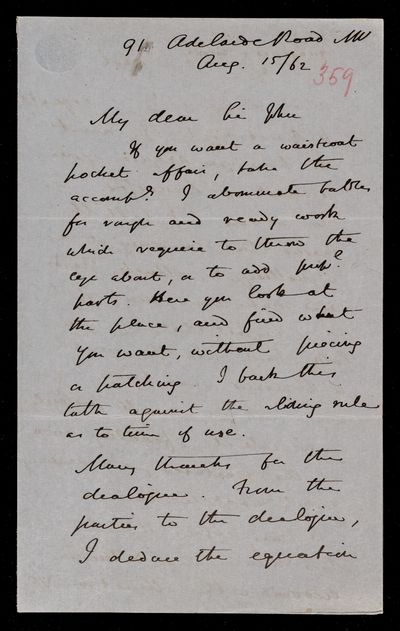 91 Adelaide Road NW
Aug. 15/62
359
My dear Sir John
If you want a waistcoat
pocket affair, take the
accompg. I abominate tables
for rough and ready work
which require to throw the
eye about, or to add propl
parts. Here you look at
the place, and find what
you want, without piecing
or patching. I back this
table against the sliding rule
as to time of use.
Many thanks for the
dialogue. From the
parties to the dialogue,
I deduce the equation